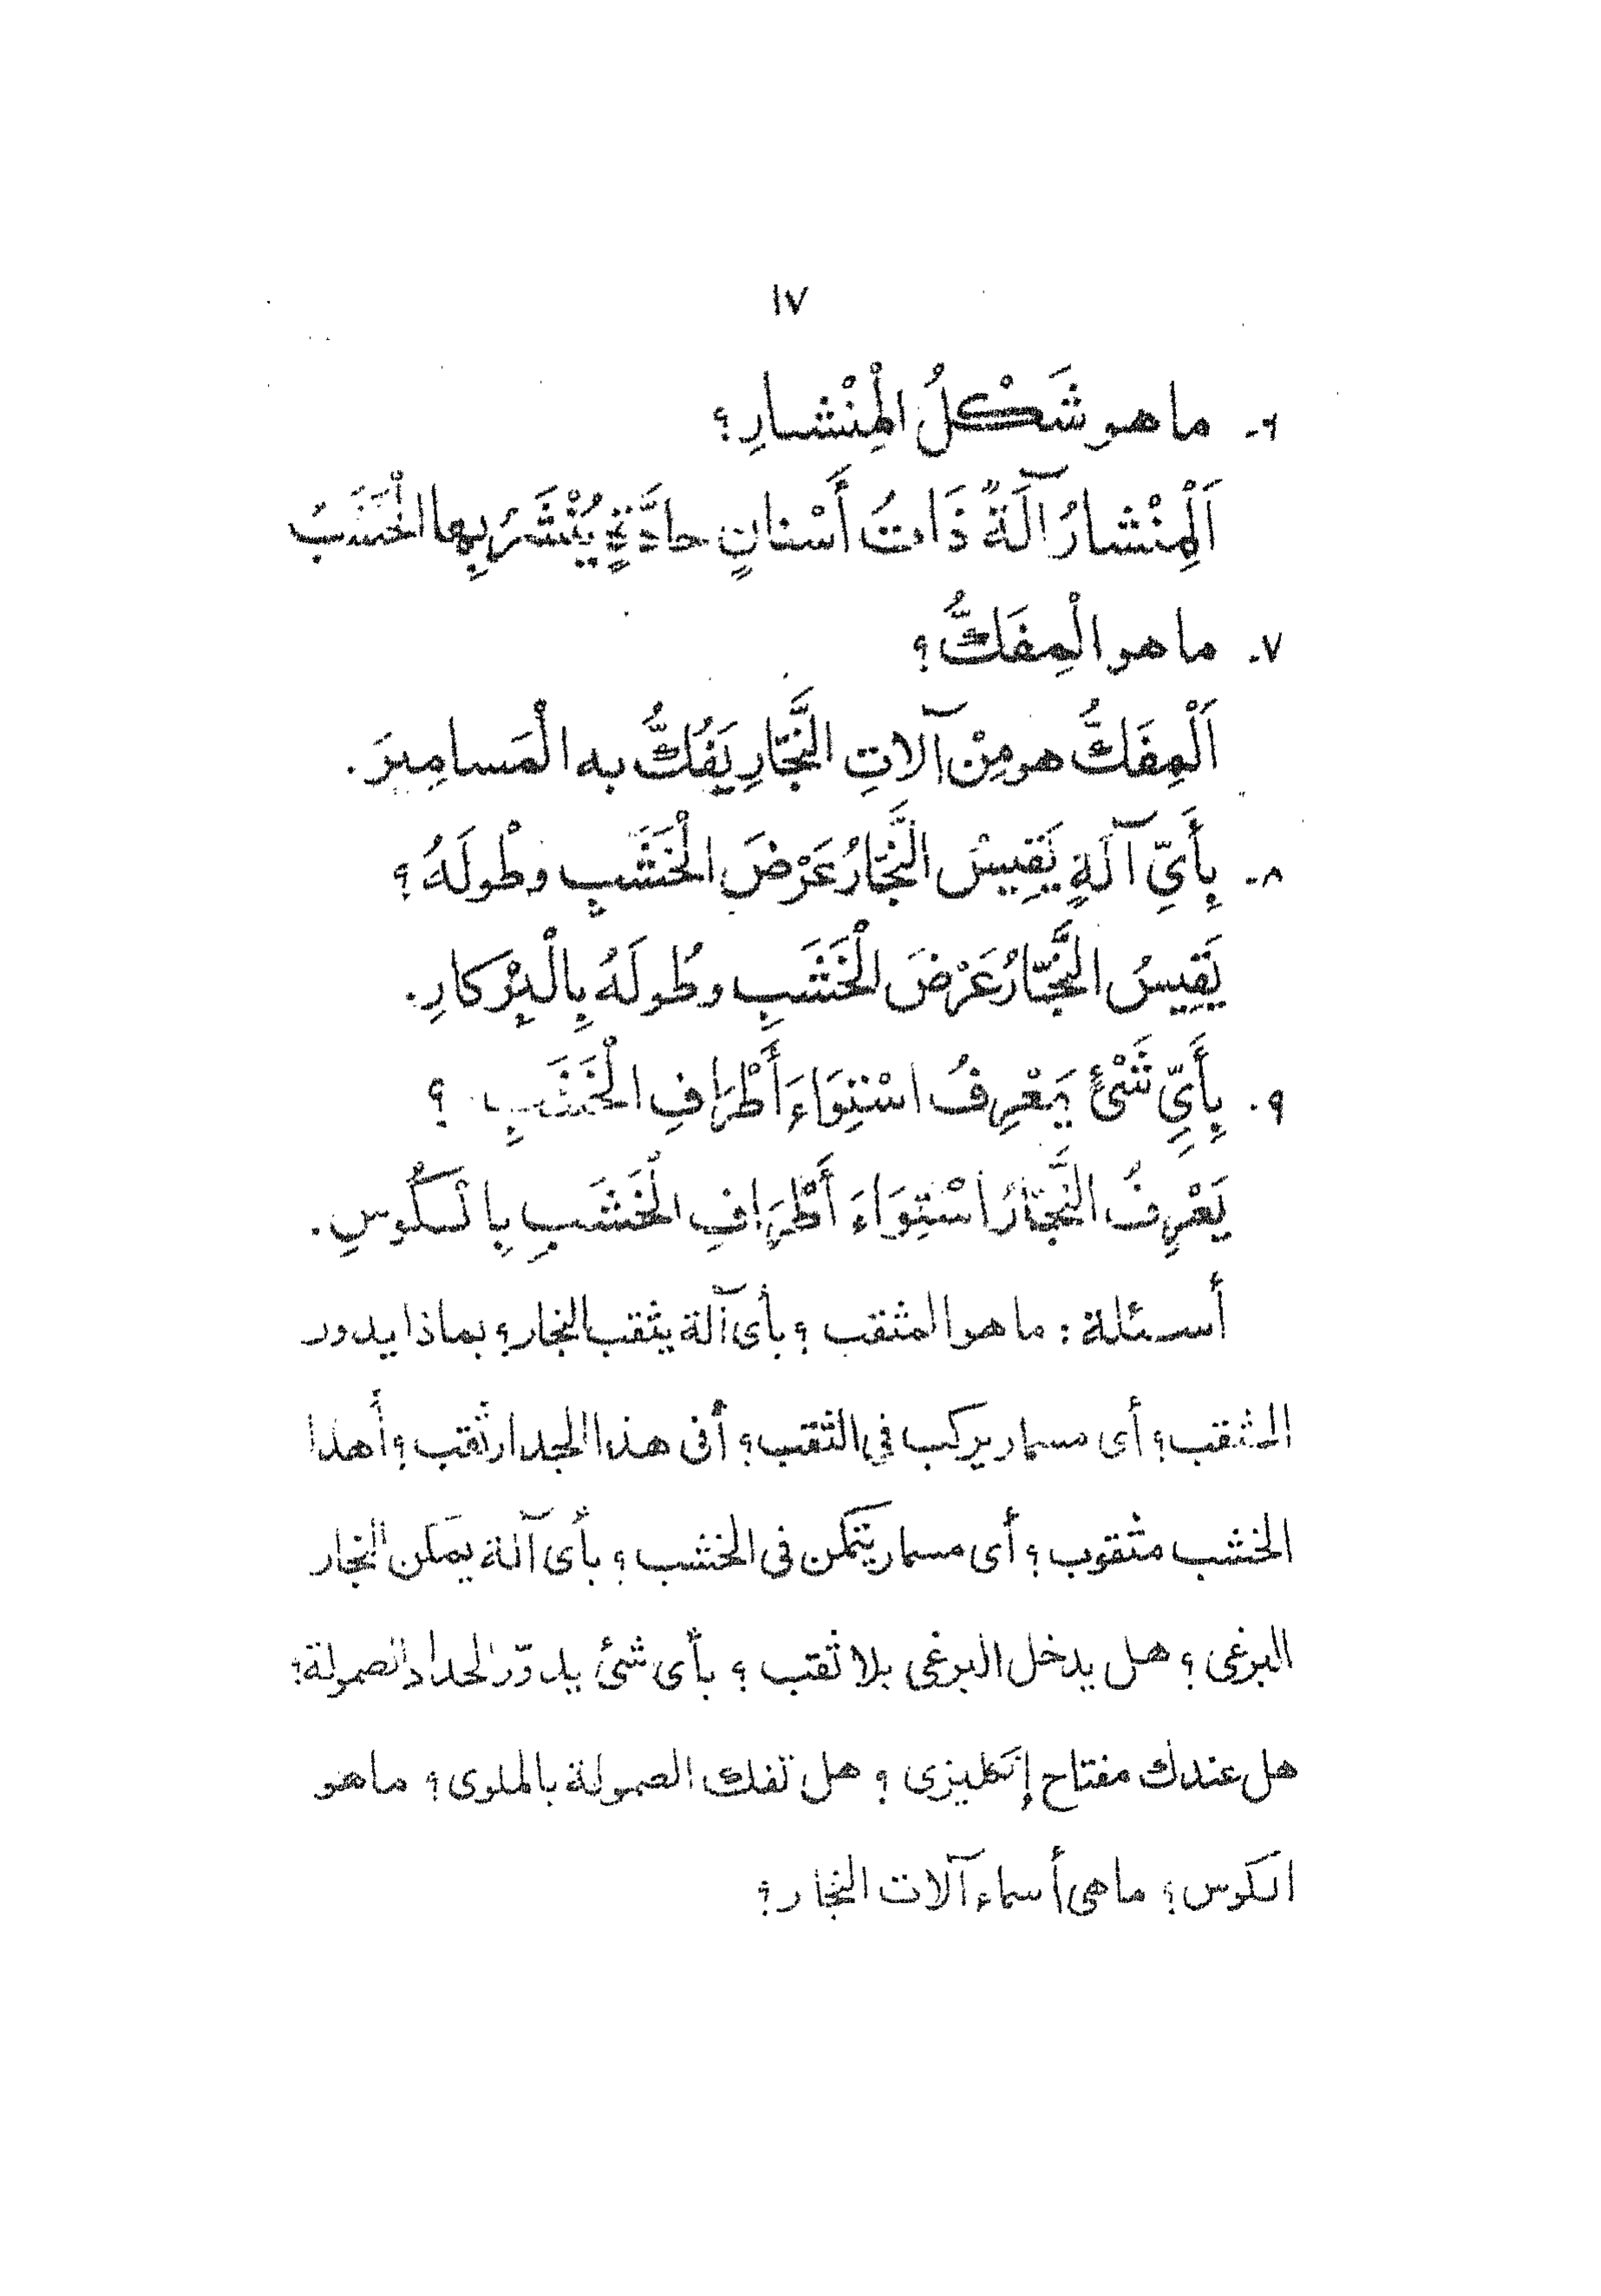 ١٧
٦- ما هو شَكْلُ الْمِنْشارِ؟
اَلْمِنْشارُ آلَةٌ ذَاتُ أَسْنانٍ حادَّةٍ يُنْشَرُ بِها الْخَشَبُ
٧- ما هو الْمِفَكُّ؟
اَلْمِفَكُّ هو مِنْ آلاتِ النَّجَّارِ يَفُكُّ به الْمَسامِيرَ.
٨- بِأَيِّ آلَةٍ يَقِيسُ النَّجَّارُ عَرْضَ الْخَشَبِ وطُولَهُ؟
يَقِيسُ النَّجَّارُ عَرْضَ الْخَشَبِ وطُولَهُ بِالْبِرْكارِ.
٩- بِأَيِّ شَئْ يَعْرِفُ اسْتِوَاءَ أَطْرَافِ الْخَشَبِ ؟
يَعْرِفُ النَّجَّارُ اسْتِوَاءَ أَطْرَافِ الْخَشَبِ بِالْكُوسِ.
أسئلة : ما هو المثقب ؟ بأى آلة يثقب النجار؟ بماذا يدور
المثقب؟ أى مسمار يركب في الثقب؟ أفى هذا الجدار ثقب؟ أهذا
الخشب مثقوب؟ أى مسمار يتمكن فى الخشب؟ بأى آلة يمكن النجار
البرغى؟ هل يدخل البرغى بلا ثقب ؟ بأى شئ يدوّر الحداد الصمولة؟
هل عندك مفتاح إنكليزى ؟ هل تفك الصمولة بالملوى؟ ما هو
الكوس؟ ما هى أسماء آلات النجار؟